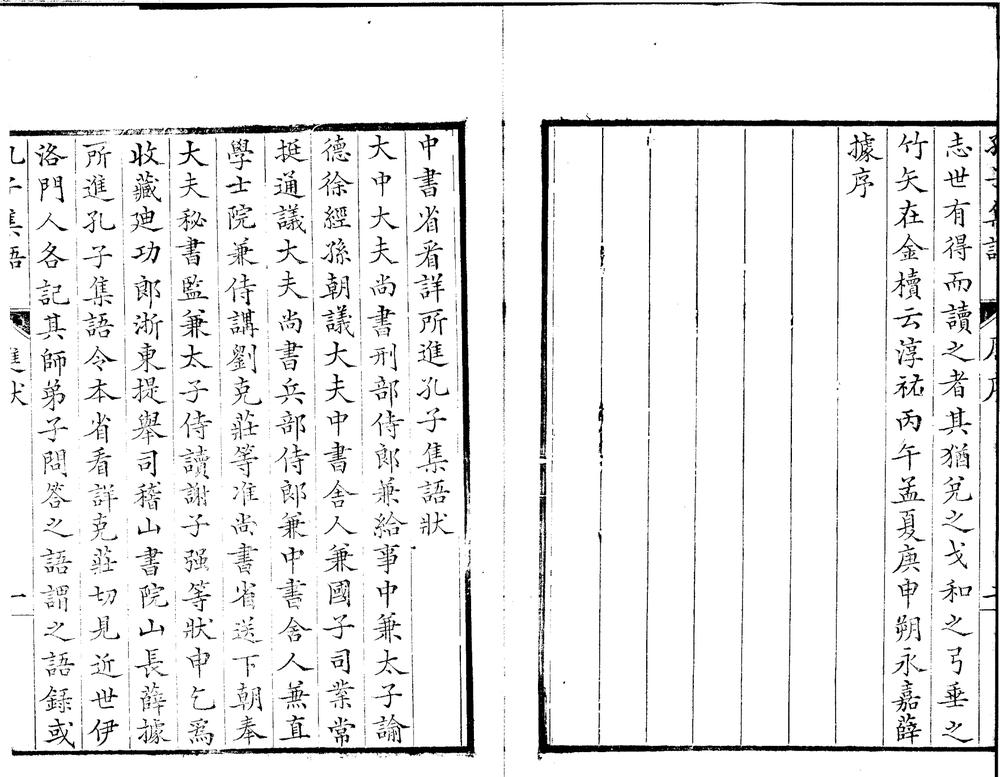 孔子集語
序
志世有得而讀之者其猶兌之戈和之弓垂之
竹矢在金櫝云淳祐丙午孟夏庚申朔永嘉薛
據序
中書省看詳所進孔子集語狀
大中大夫尚書刑部侍郎兼給事中兼太子諭
德徐經孫朝議大夫中書舍人兼國子司業常
挺通議大夫尚書兵部侍郎兼中書舍人兼直
學士院兼侍講劉克莊等准尚書省送下朝奉
大夫秘書監兼太子侍讀謝子强等狀申乞爲
收藏廸功郎浙東提舉司稽山書院山長薛據
所進孔子集語令本省看詳克莊切見近世伊
洛門人各記其師弟子問答之語謂之語録或
孔子集語
進狀
一